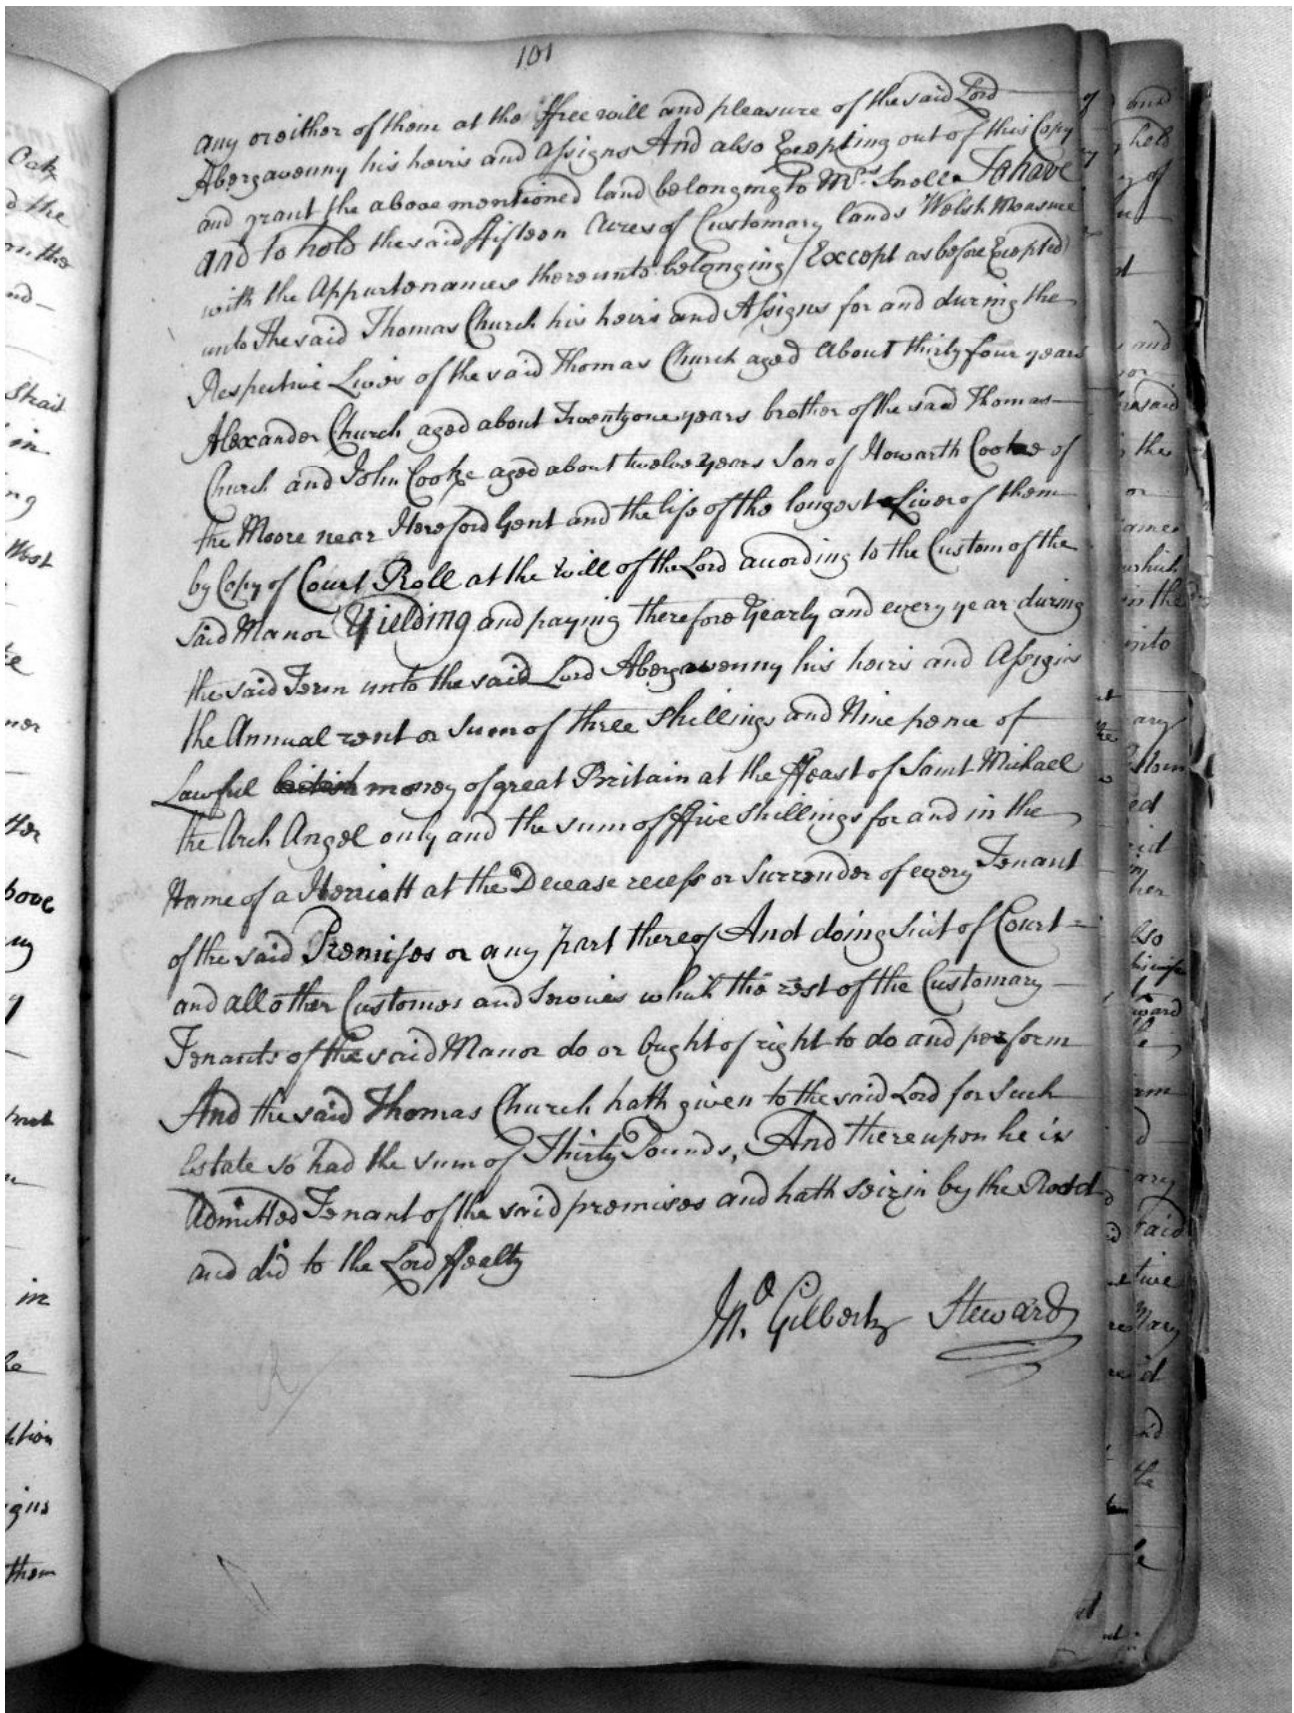 101
any or either of them at the ffree will and pleasure of the said Lord
Abergavenny his heirs and Assigns And also Excepting out of this Copy
and grant the above mentioned land belonging to Mrs Snell To have
and to hold the said ffifteen Acres of Customary lands Welsh Measure
with the Appurtenances thereunto belonging (Except as before Excepted)
unto the said Thomas Church his heirs and Assigns for and during the
Respective Lives of the said Thomas Church aged about thirty four years
Alexander Church aged about Twenty one years brother of the said Thomas
Church and John Cooke aged about twelve years Son of Howarth Cooke of
the Moore near Hereford Gent and the life of the longest Liver of them
by Copy of Court Roll at the will of the Lord according to the Custom of the
said Manor Yielding and paying therefore Yearly and every year during
the said Term unto the said Lord Abergavenny his heirs and Assigns
the Annual rent or Sum of three Shillings and Nine pence of
Lawful british money of great Britain at the ffeast of Saint Michael
the Arch Angel only and the sum of ffive Shillings for and in the
Name of a Herriott at the Decease recess or Surrender of every Tenant
of the said Premises or any part thereof And doing Suit of Court =
and all other Customes and Services which the rest of the Customary
Tenants of the said Manor do or Ought of right to do and perform
And the said Thomas Church hath given to the said Lord for Such
Estate so had the sum of Thirty Pounds, And thereupon he is
Admitted Tenant of the said premises and hath seizin by the Rodd
and did to the Lord ffealty
Jno. Gilbert Steward